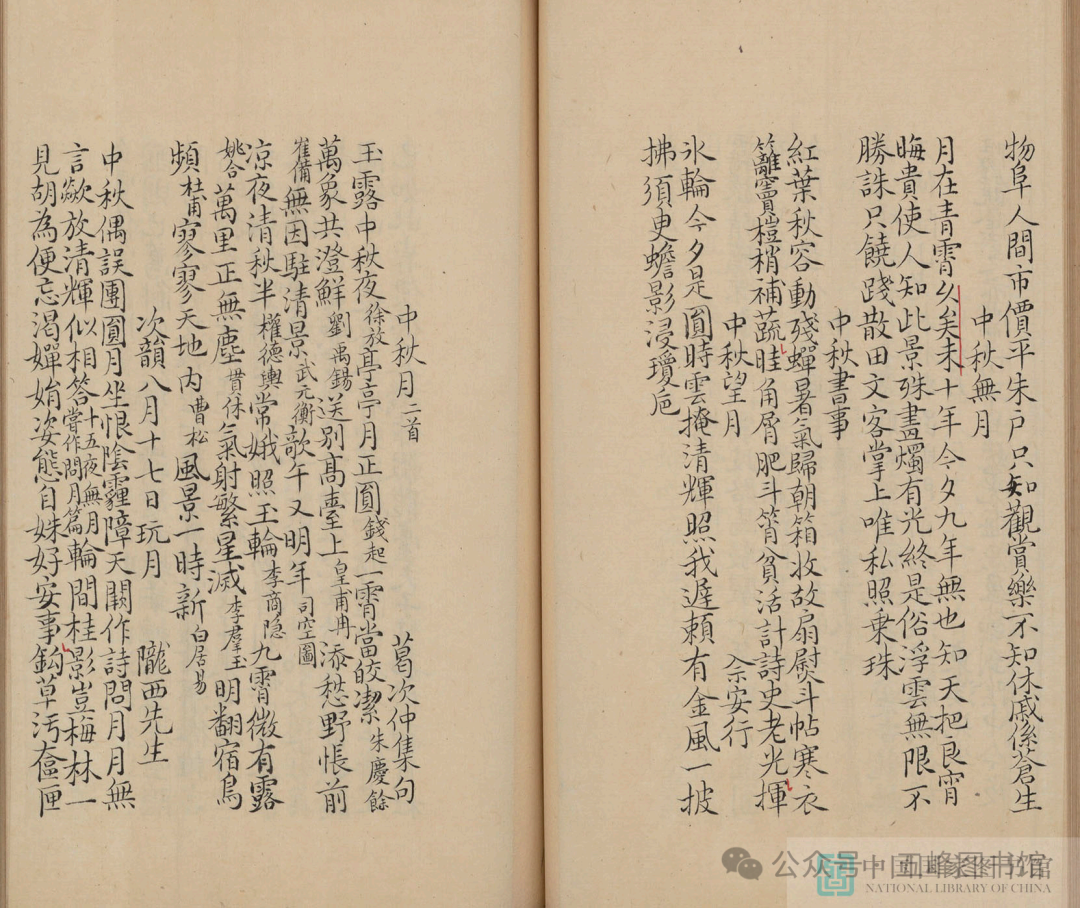 物阜人間市價平朱户只知觀賞樂不知休戚係蒼生
中秋無月
月在青霄久矣未十年今夕九年無也知天把良宵
晦貴使人知此景殊盡燭有光終是俗浮雲無限不
勝誅只饒踐散田文客掌上唯私照乗珠
中秋書事
紅葉秋容動殘蟬暑氣歸朝箱收故扇熨斗帖寒衣
籬竇櫃梢補蔬畦角屑肥斗筲貧活計詩史老光揮
中秋望月
余安行
氷輪今夕是圓時雲掩清輝照我遲頼有金風一披
拂須更蟾影浸瓊巵
中秋月二首
葛次仲集句
玉露中秋夜徐放亭亭月正圓錢起一霄當皎潔朱慶餘
萬象共澄鮮劉禹錫送別高臺上皇甫冉添愁野帳前
崔備無因駐清景武元衡歌午又明年司空圖
凉夜清秋半權德輿常娥照玉輪李商隐九霄微有露
姚合萬里正無塵貫休氣射繁星滅李羣玉明翻宿鳥
頻杜甫寥寥天地内曹松風景一時新白居易
次韻八月十七日玩月
隴西先生
中秋偶誤團圓月坐恨陰霾障天闕作詩問月月無
言歘放清輝似相答十五夜無月嘗作問月篇輪間桂影豈梅林一
見胡為便忘渇嬋娟姿態自姝好安事鈎草汚奩匣
公众号·中国国家图书馆
NATIONAL LIBRARY OF CHINA